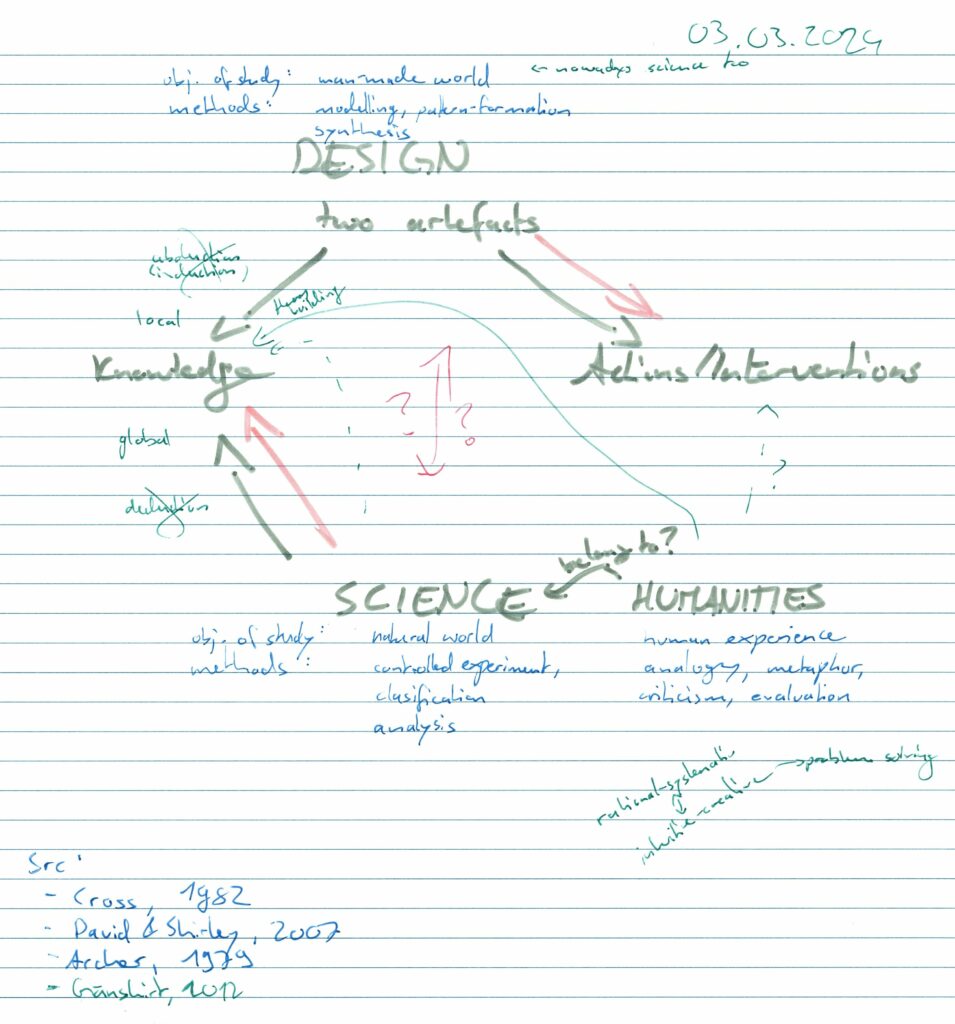 03.03.2024
obj. of study: man-made world ← nowadays science too
methods: modelling, pattern-formation
synthesis
DESIGN
two artefacts
abduction
(induction)
theory
building
local
Knowledge
Actions/Interventions
? ?
global
?
deduction
belongs to?
SCIENCE HUMANITIES
obj. of study: natural world human experience
methods: controlled experiment, analogy, metaphor,
clasification criticism, evaluation
analysis
rational-systematic
intuitive-creative → problem solving
Src:
- Cross, 1982
- David & Shirley, 2007
- Archer, 1979
- Gänshirt, 2012